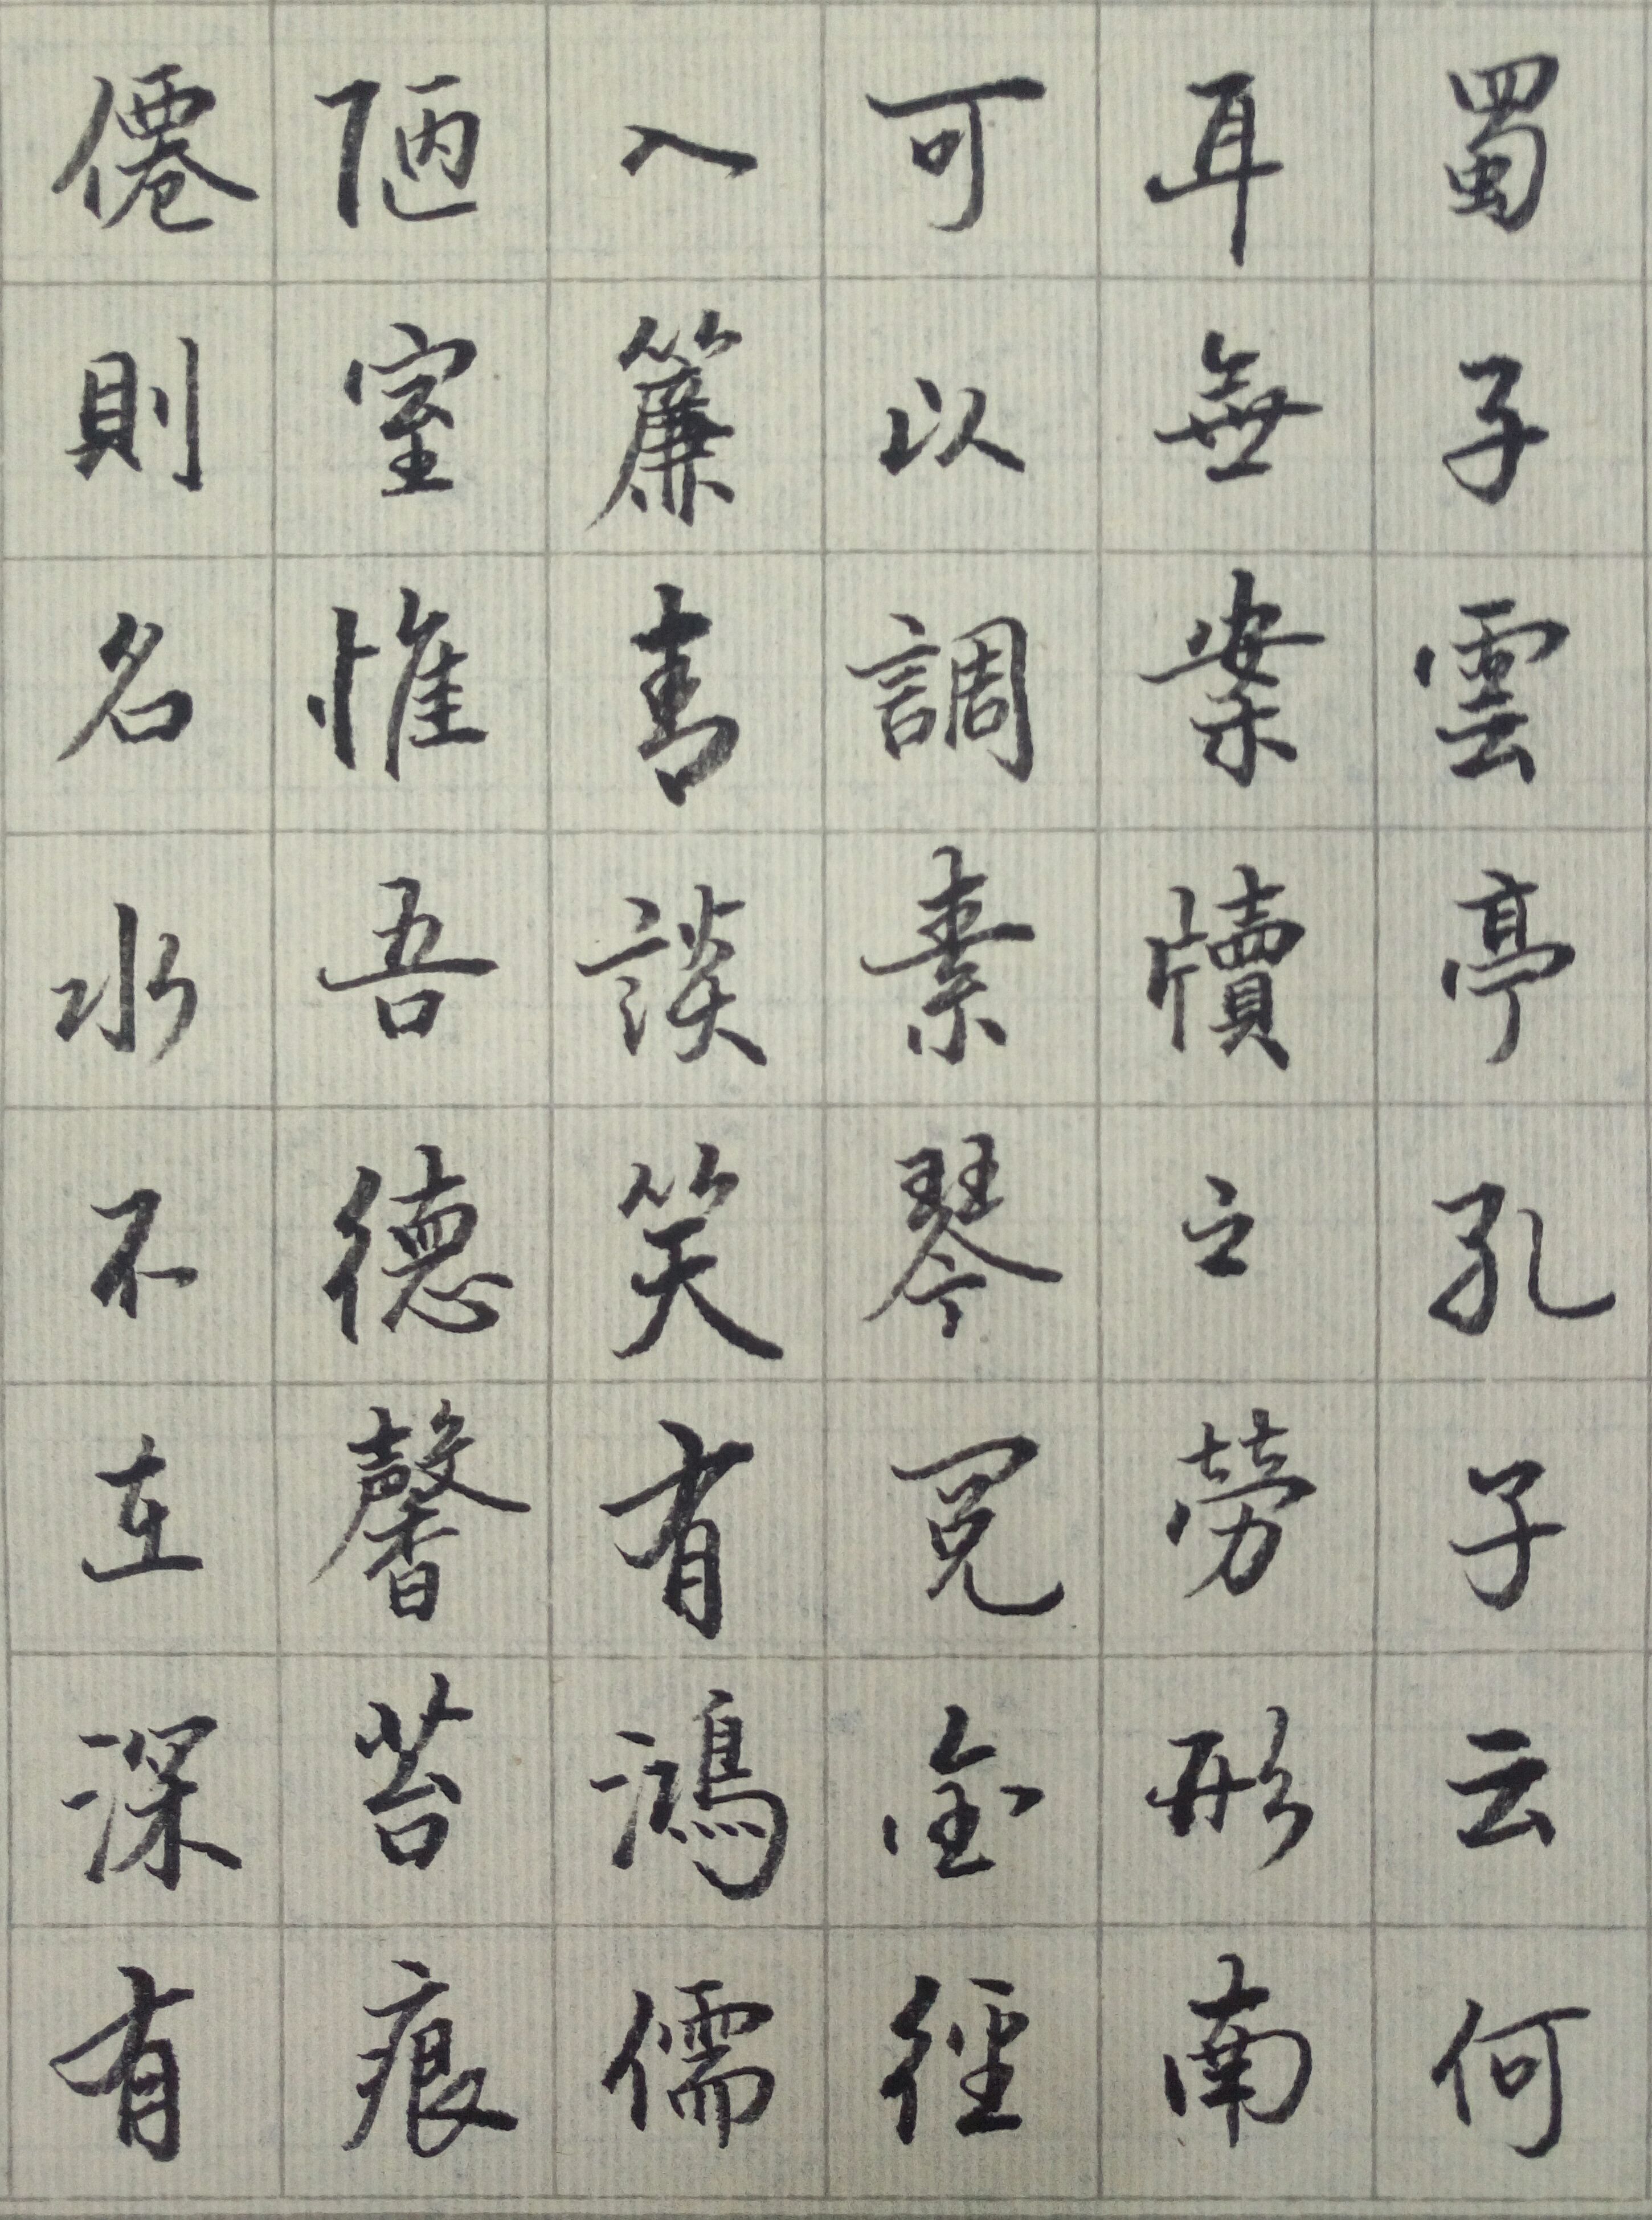 僊則名水不在深有
陋室惟吾德馨苔痕
入簾青談笑有鴻儒
可以調素琴閱金徑
耳無案牘之勞形南
蜀子雲亭孔子云何